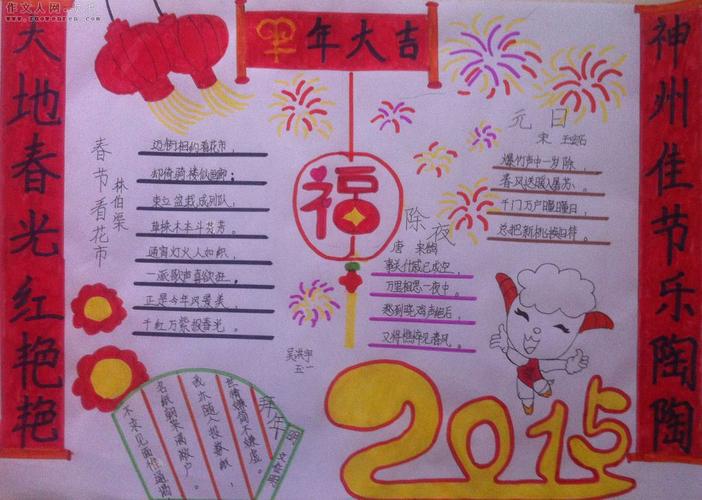 作文人网
www.zuowenren.com
天地春光红艳艳
神州佳节乐陶陶
羊年大吉
福
春节看花市
林伯栗
迈街相约看花市，
却倚骑楼似画廊；
束立盆栽成列队，
草株木本斗芬芳。
通宵灯火人如织，
一派歌声喜欲狂。
正是今年风景美，
千红万紫报春光。
元日
宋 王安石
爆竹声中一岁除，
春风送暖入屠苏。
千门万户曈曈日，
总把新桃换旧符。
除夜
唐 来鹄
事关休戚已成空，
万里相思一夜中。
愁到晓鸡声绝后，
又将憔悴见春风。
吴洪宇
五一
拜年
明 文征明
不求见面惟通谒，
名纸朝来满敝庐。
我亦随人投数纸，
世情嫌简不嫌虚。
2015